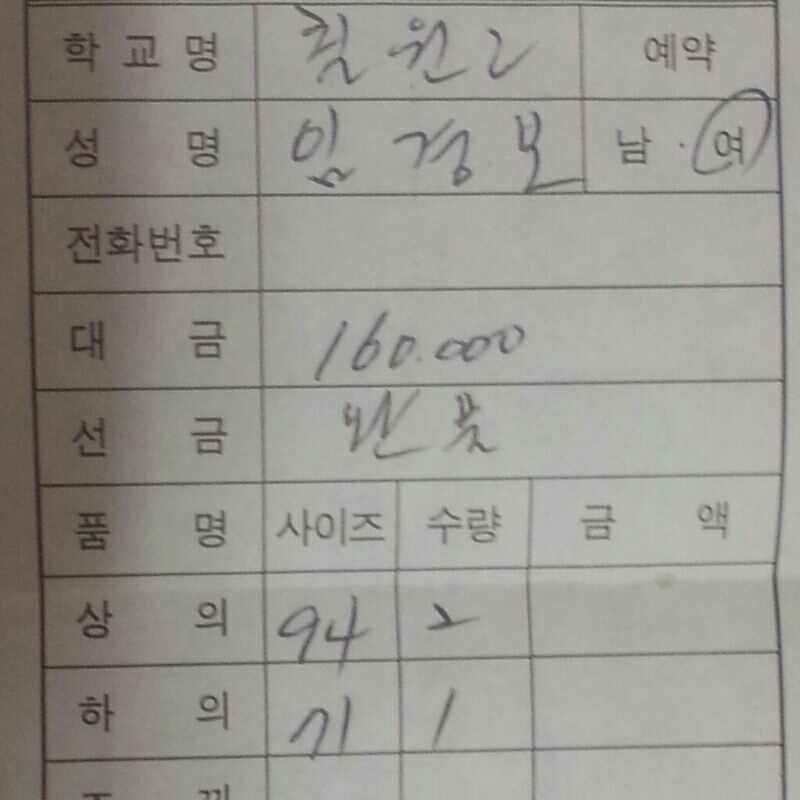 학교명 칠원고 예약
성명 임경보 남·여
전화번호
대금 160.000
선금 완불
품명 사이즈 수량 금액
상의 94 2
하의 71 1
조끼